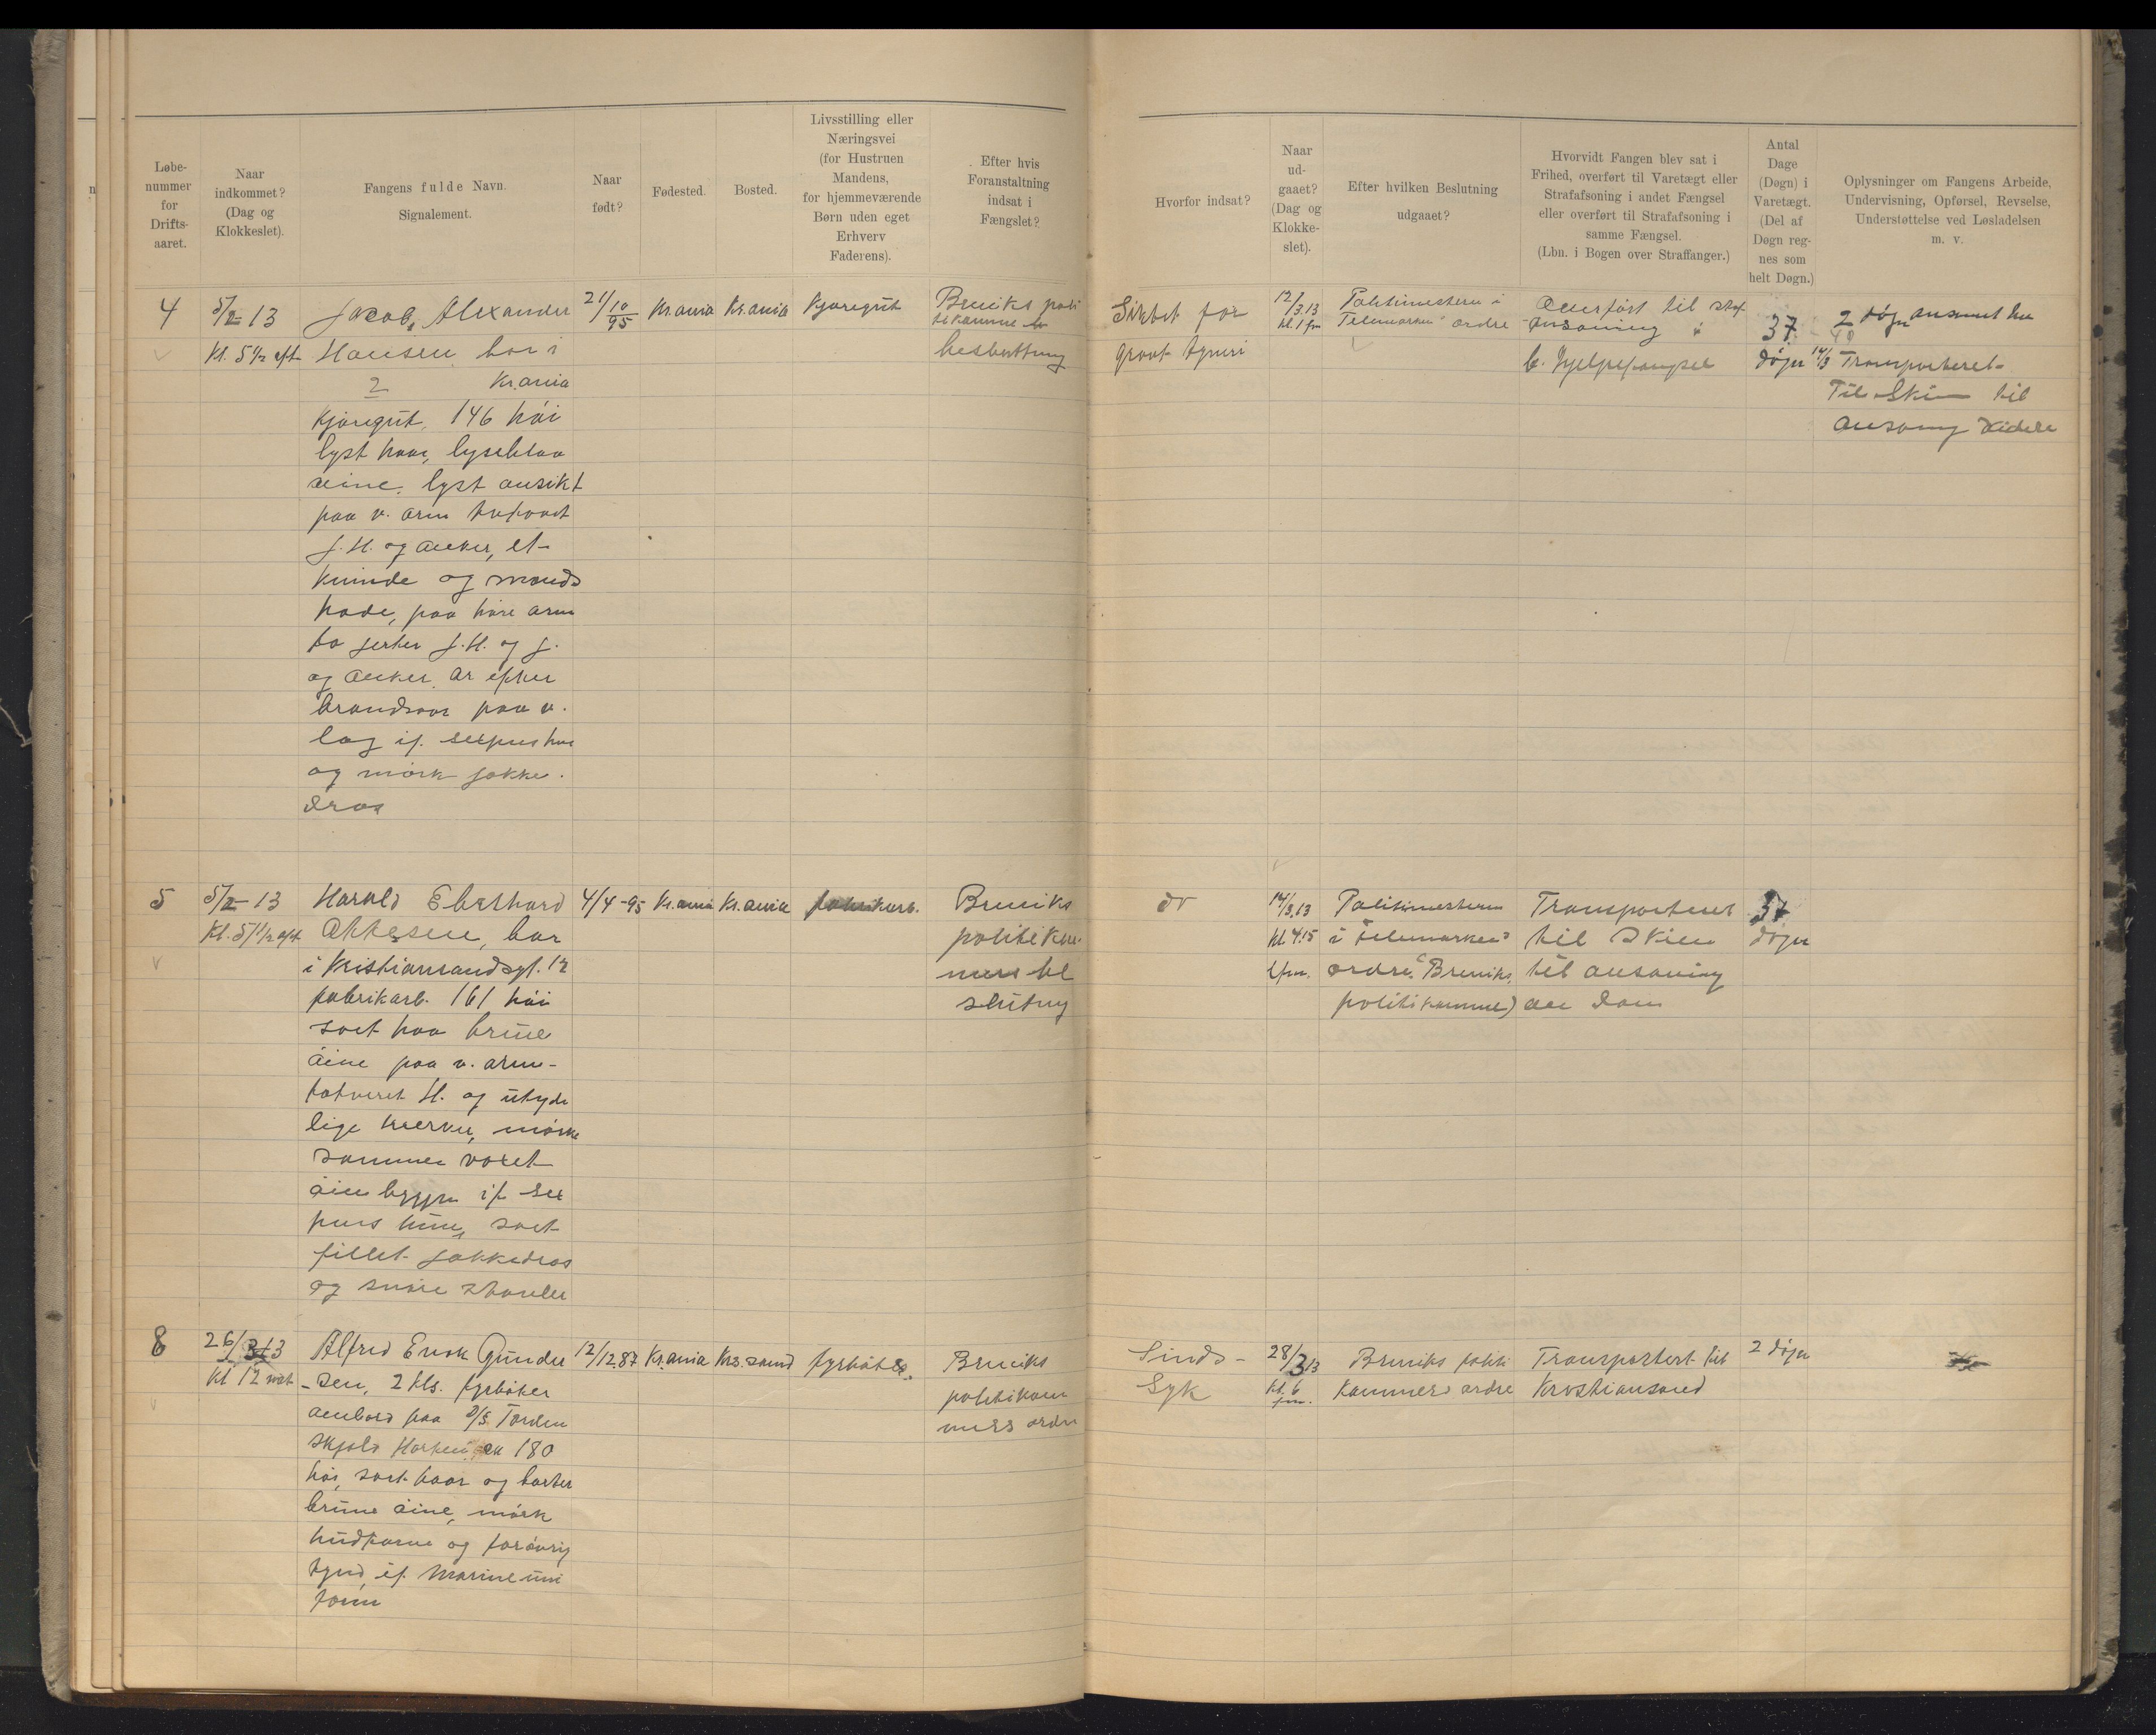 Løbe-
nummer
for
Drifts-
aaret.
Naar
indkommet?
(Dag og
Klokkeslet).
Fangens fulde Navn.
Signalement.
Naar
født?
Fødested.
Bosted.
Livsstilling eller
Næringsvei
(for Hustruen
Mandens,
for hjemmeværende
Børn uden eget
Erhverv
Faderens).
Efter hvis
Foranstaltning
indsat i
Fængslet?
Hvorfor indsat?
Naar
ud-
gaaet?
(Dag og
Klokke-
slet).
Efter hvilken Beslutning
udgaaet?
Hvorvidt Fangen blev sat i
Frihed, overført til Varetægt eller
Strafafsoning i andet Fængsel
eller overført til Strafafsoning i
samme Fængsel.
(Lbn. i Bogen over Straffanger.)
Antal
Dage
(Døgn) i
Varetægt.
(Del af
Døgn reg-
nes som
helt Døgn.)
Oplysninger om Fangens Arbeide,
Undervisning, Opførsel, Revselse,
Understøttelse ved Løsladelsen
m. v.
4
5/2-13
Kl. 5 1/2 eft
Jacob Alexander
Hansen bor i
2 Kr.ania
Kjøregut, 146 høi
lyst haar, lyseblaa
øine, lyst ansikt
paa v. arm
J.H. og anker, et
kvinde og mands
hode, paa høire arm
to J.H. og J.
og anker. ar efter
brandsaar paa v.
lag if.
og mørk jakke.
21/10 95
Kr.ania
Kr.ania
Kjøregut
Breviks poli
tikammer
beslutning
Siktet for
grovt tyveri
12/3.13
kl. 1 fm
Politimesteren i
Telemarken ordre
Overført til straf
ansoning i
b. Hjelpefængsel
37
døgn
2 døgn ansonet her
14/3 Transporteret
Til Skien til
ansoning videre
5
5/2-13
Kl. 5 1/2 eft
Harald Eberhard
bor
i Kristiansandsgt. 12
fabrikarb. 161 høi
sort haar brune
øine paa v. arm
tatoveret H. og utyde
lige merker, mørke
sammen voxet
øien brygn if.
sort
fillet jakkedras
og snøre
4/4-95
Kr.ania
Kr.ania
fabrikarb.
Breviks
politikam
mers be
slutning
do
14/3.13
Kl 4.15
efm.
Politimesteren
i Telemarkens
ordre (Breviks
politikammer)
Transporteret
til Skien
til ansoning
av dom
37
døgn
8
26/3 13
Kl 12 nat
Alfred Enok Gunder
-sen, 2 kls. fyrbøter
ombord paa D/S. Torden
skjold Horten, ca 180
høi, sort haar og barter
brune øine, mørk
hudfarve og forøvrig
if. Marineuni
form
12/12.87
Kr.ania
Krs.sand
fyrbøter.
Breviks
politikam
mers ordre
Sinds-
Syk
28/3 13
Kl. 6
fm.
Breviks politi
kammers ordre
Transportert til
Kristiansand
2 døgn